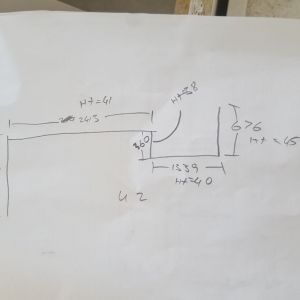 Ht=41
2415
Ht=38
360
676
Ht=45
1339
Ht=40
42